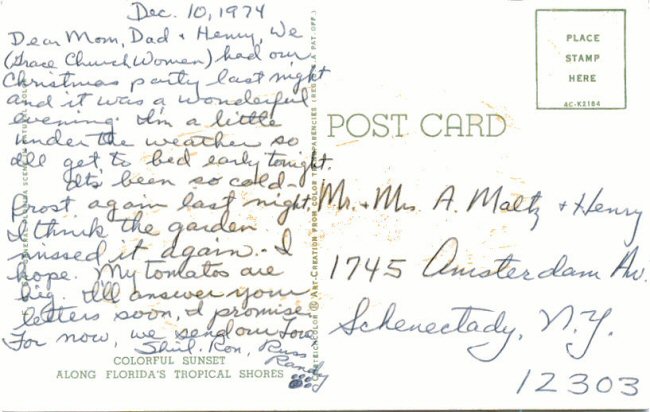 Dec. 10, 1974
Dear Mom, Dad & Henry, We
(Grace Church Women) had our
Christmas party last night
and it was a wonderful
evening. I'm a little
under the weather so
I'll get to bed early tonight.
It's been so cold -
frost again last night.
I think the garden
missed it again - I
hope. My tomatos are
big. I'll answer your
letters soon, I promise.
For now, we send our love
Shirl. Ron, Russ
Randy
COLORFUL SUNSET
ALONG FLORIDA'S TROPICAL SHORES
ART-CREATION FROM COLOR TRANSPARENCIES (REG. U.S.A. PAT. OFF.)
POST CARD
PLACE
STAMP
HERE
AC-K2184
Mr. & Mrs A. Maltz & Henry
1745 Amsterdam Av.
Schenectady, N.Y.
12303